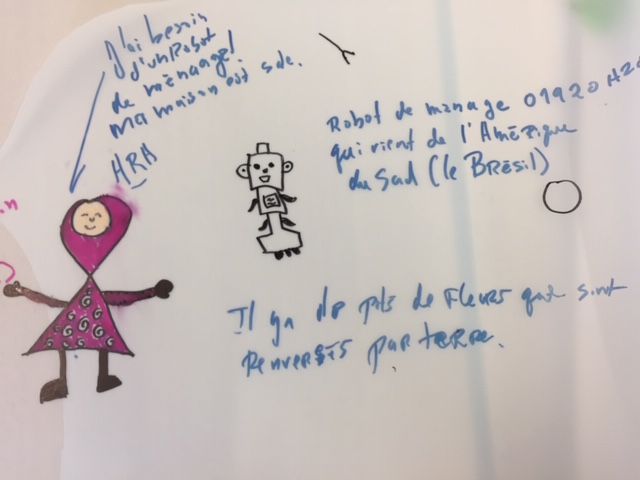 J'ai besoin
d'un Robot
de ménage!
Ma maison est sale.
Robot de menage 01920
qui vient de l'Amérique
du Sud (le BRésil)
Il ya des pots de Fleurs qui sont
RenveRsés par terre.